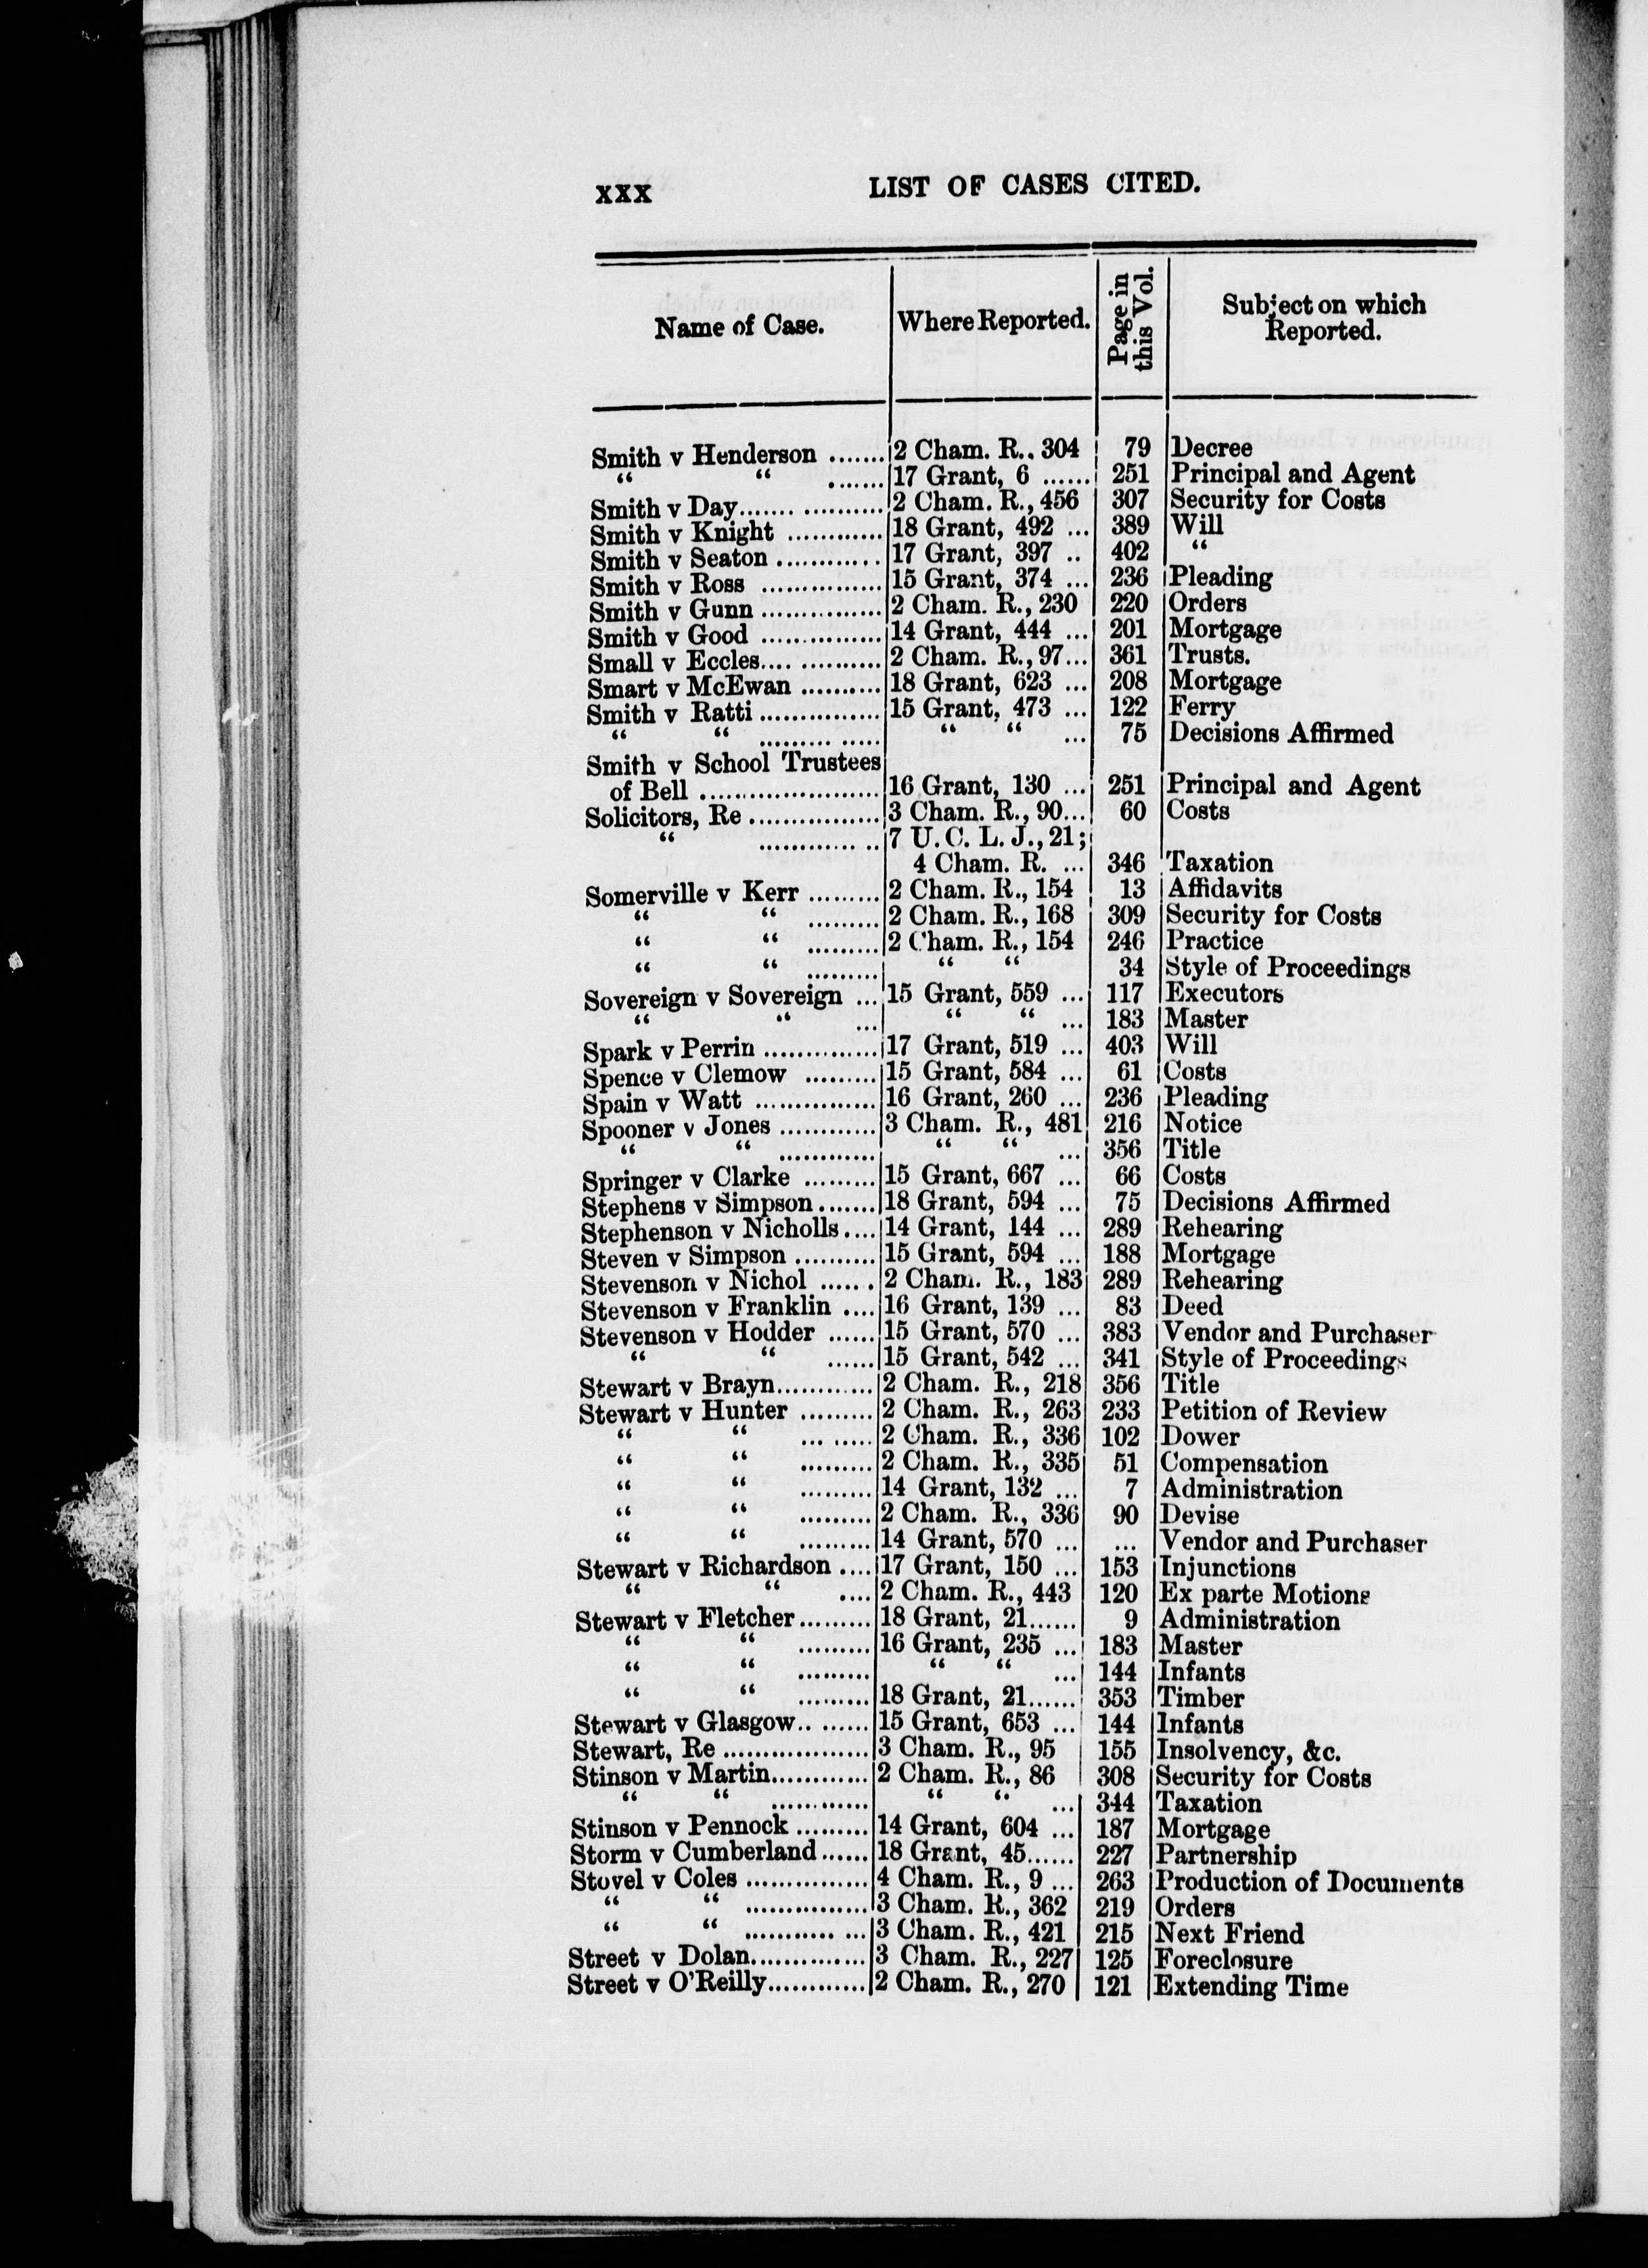 xxx LIST OF CASES CITED.
Name of Case. Where Reported. Page in this Vol. Subject on which Reported.
Smith v Henderson ....... 2 Cham. R.. 304 79 Decree
“ “ ....... 17 Grant, 6 ...... 251 Principal and Agent
Smith v Day....... ........... 2 Cham. R., 456 307 Security for Costs
Smith v Knight ............ 18 Grant, 492 ... 389 Will
Smith v Seaton ............ 17 Grant, 397 .. 402 “
Smith v Ross ............... 15 Grant, 374 ... 236 Pleading
Smith v Gunn ............... 2 Cham. R., 230 220 Orders
Smith v Good ............... 14 Grant, 444 ... 201 Mortgage
Small v Eccles.... ........... 2 Cham. R., 97... 361 Trusts.
Smart v McEwan .......... 18 Grant, 623 ... 208 Mortgage
Smith v Ratti ............... 15 Grant, 473 ... 122 Ferry
“ “ ......... ..... “ “ ... 75 Decisions Affirmed
Smith v School Trustees
of Bell ...................... 16 Grant, 130 ... 251 Principal and Agent
Solicitors, Re ................ 3 Cham. R., 90... 60 Costs
“ ............ .. 7 U. C. L. J., 21;
4 Cham. R. ... 346 Taxation
Somerville v Kerr ......... 2 Cham. R., 154 13 Affidavits
“ “ ......... 2 Cham. R., 168 309 Security for Costs
“ “ ......... 2 Cham. R., 154 246 Practice
“ “ ......... “ “ 34 Style of Proceedings
Sovereign v Sovereign ... 15 Grant, 559 ... 117 Executors
“ “ ... “ “ ... 183 Master
Spark v Perrin .............. 17 Grant, 519 ... 403 Will
Spence v Clemow ......... 15 Grant, 584 ... 61 Costs
Spain v Watt ............... 16 Grant, 260 ... 236 Pleading
Spooner v Jones ............ 3 Cham. R., 481 216 Notice
“ “ ............ “ “ ... 356 Title
Springer v Clarke ......... 15 Grant, 667 ... 66 Costs
Stephens v Simpson....... 18 Grant, 594 ... 75 Decisions Affirmed
Stephenson v Nicholls.... 14 Grant, 144 ... 289 Rehearing
Steven v Simpson .......... 15 Grant, 594 ... 188 Mortgage
Stevenson v Nichol ...... . 2 Cham. R., 183 289 Rehearing
Stevenson v Franklin .... 16 Grant, 139 ... 83 Deed
Stevenson v Hodder ...... 15 Grant, 570 ... 383 Vendor and Purchaser
“ “ ...... 15 Grant, 542 ... 341 Style of Proceedings
Stewart v Brayn............ 2 Cham. R., 218 356 Title
Stewart v Hunter ......... 2 Cham. R., 263 233 Petition of Review
“ “ ... ..... 2 Cham. R., 336 102 Dower
“ “ ......... 2 Cham. R., 335 51 Compensation
“ “ ......... 14 Grant, 132 ... 7 Administration
“ “ ......... 2 Cham. R., 336 90 Devise
“ “ ......... 14 Grant, 570 ... ... Vendor and Purchaser
Stewart v Richardson .... 17 Grant, 150 ... 153 Injunctions
“ “ .... 2 Cham. R., 443 120 Ex parte Motions
Stewart v Fletcher......... 18 Grant, 21...... 9 Administration
“ “ ......... 16 Grant, 235 ... 183 Master
“ “ ......... “ “ ... 144 Infants
“ “ ......... 18 Grant, 21...... 353 Timber
Stewart v Glasgow.. ...... 15 Grant, 653 ... 144 Infants
Stewart, Re .................. 3 Cham. R., 95 155 Insolvency, &c.
Stinson v Martin............ 2 Cham. R., 86 308 Security for Costs
“ “ ............ “ “ ... 344 Taxation
Stinson v Pennock ......... 14 Grant, 604 ... 187 Mortgage
Storm v Cumberland...... 18 Grant, 45...... 227 Partnership
Stovel v Coles ............... 4 Cham. R., 9 ... 263 Production of Documents
“ “ ............... 3 Cham. R., 362 219 Orders
“ “ ........... ... 3 Cham. R., 421 215 Next Friend
Street v Dolan.............. 3 Cham. R., 227 125 Foreclosure
Street v O'Reilly............ 2 Cham. R., 270 121 Extending Time